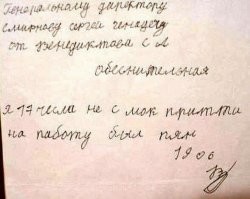 Генеральному директору
Смирнову Сергей Генадечу
от Бенедиктова С А
обеснительная
я 17 числа не с мог притти
на работу был пян
19 06